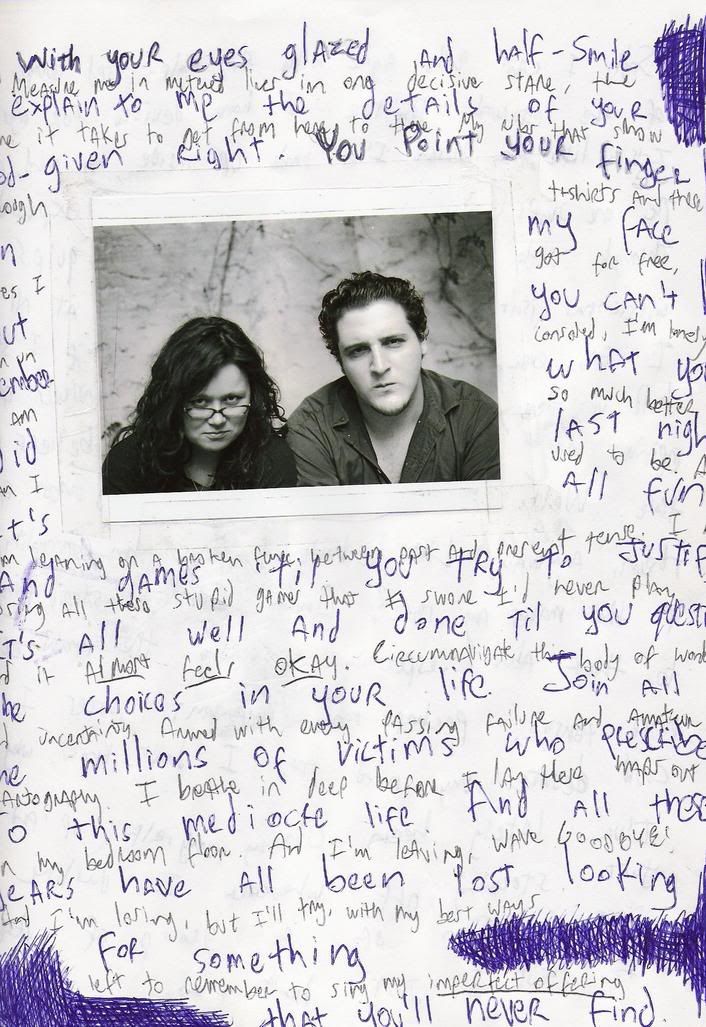 With your eyes glazed And half-smile
Measure me in metered lines in one decisive stare, the
explain to me the details of your
it takes to get from here to there My ribs that show
given right You Point your finger
t-shirts And these
my face
got for free,
es I
you can't
ut
consoled, I'm lonely
what yo
so much better
am
last nigh
used to be
n I
All fun
t's
leaning on a broken fence between past And present tense I
And games til you try to Justif
All these stupid games that I swore I'd never play
It's All well And done Til you quest
it Almost feels OKAY. Circumnavigate this body of wond
be choices in your life. Join All
uncertainty. Armed with every passing failure And Amateur
millions of victims who prescribe
I breathe in deep before I lay these maps out
to this mediocre life And all these
my bedroom floor. And I'm leaving, wave GOODBYE!
years have All been lost looking
And I'm losing, but I'll try, with my best ways
For something
left to remember to sing my imperfect offering
that you'll never find.